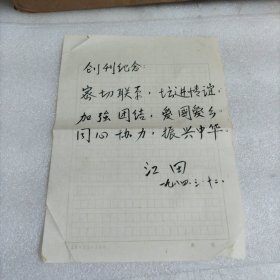 创刊纪念:
密切联系,增进情谊,
加强团结,爱国爱乡。
同心协力,振兴中华。
江田
一九八四.三.十二.